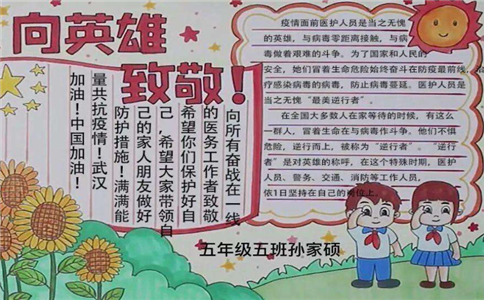 向英雄
致敬!
疫情面前医护人员是当之无愧
的英雄，与病毒零距离接触，与病
毒做着艰难的斗争。为了国家和人民的
安全，她们冒着生命危险始终奋斗在防疫最前线，
疗感染病毒的病人，防止病毒蔓延。医护人员是
当之无愧“最美逆行者”。
在全国大多数人在家等待的时候，有这么
一群人，冒着生命在与病毒作斗争。他们不惧
危险，逆行而上，被称为“逆行者”。“逆行
者”是对英雄的称呼，在这个特殊时期，医护
人员、警务、交通、消防等工作人员，
依1日坚持在自己的岗位上。
向所有奋战在一线
的医务工作者致敬
希望你们保护好自
己,希望大家带领自
己的家人朋友做好
防护措施！满满能
量共抗疫情！武汉
加油！中国加油！
五年级五班孙家硕